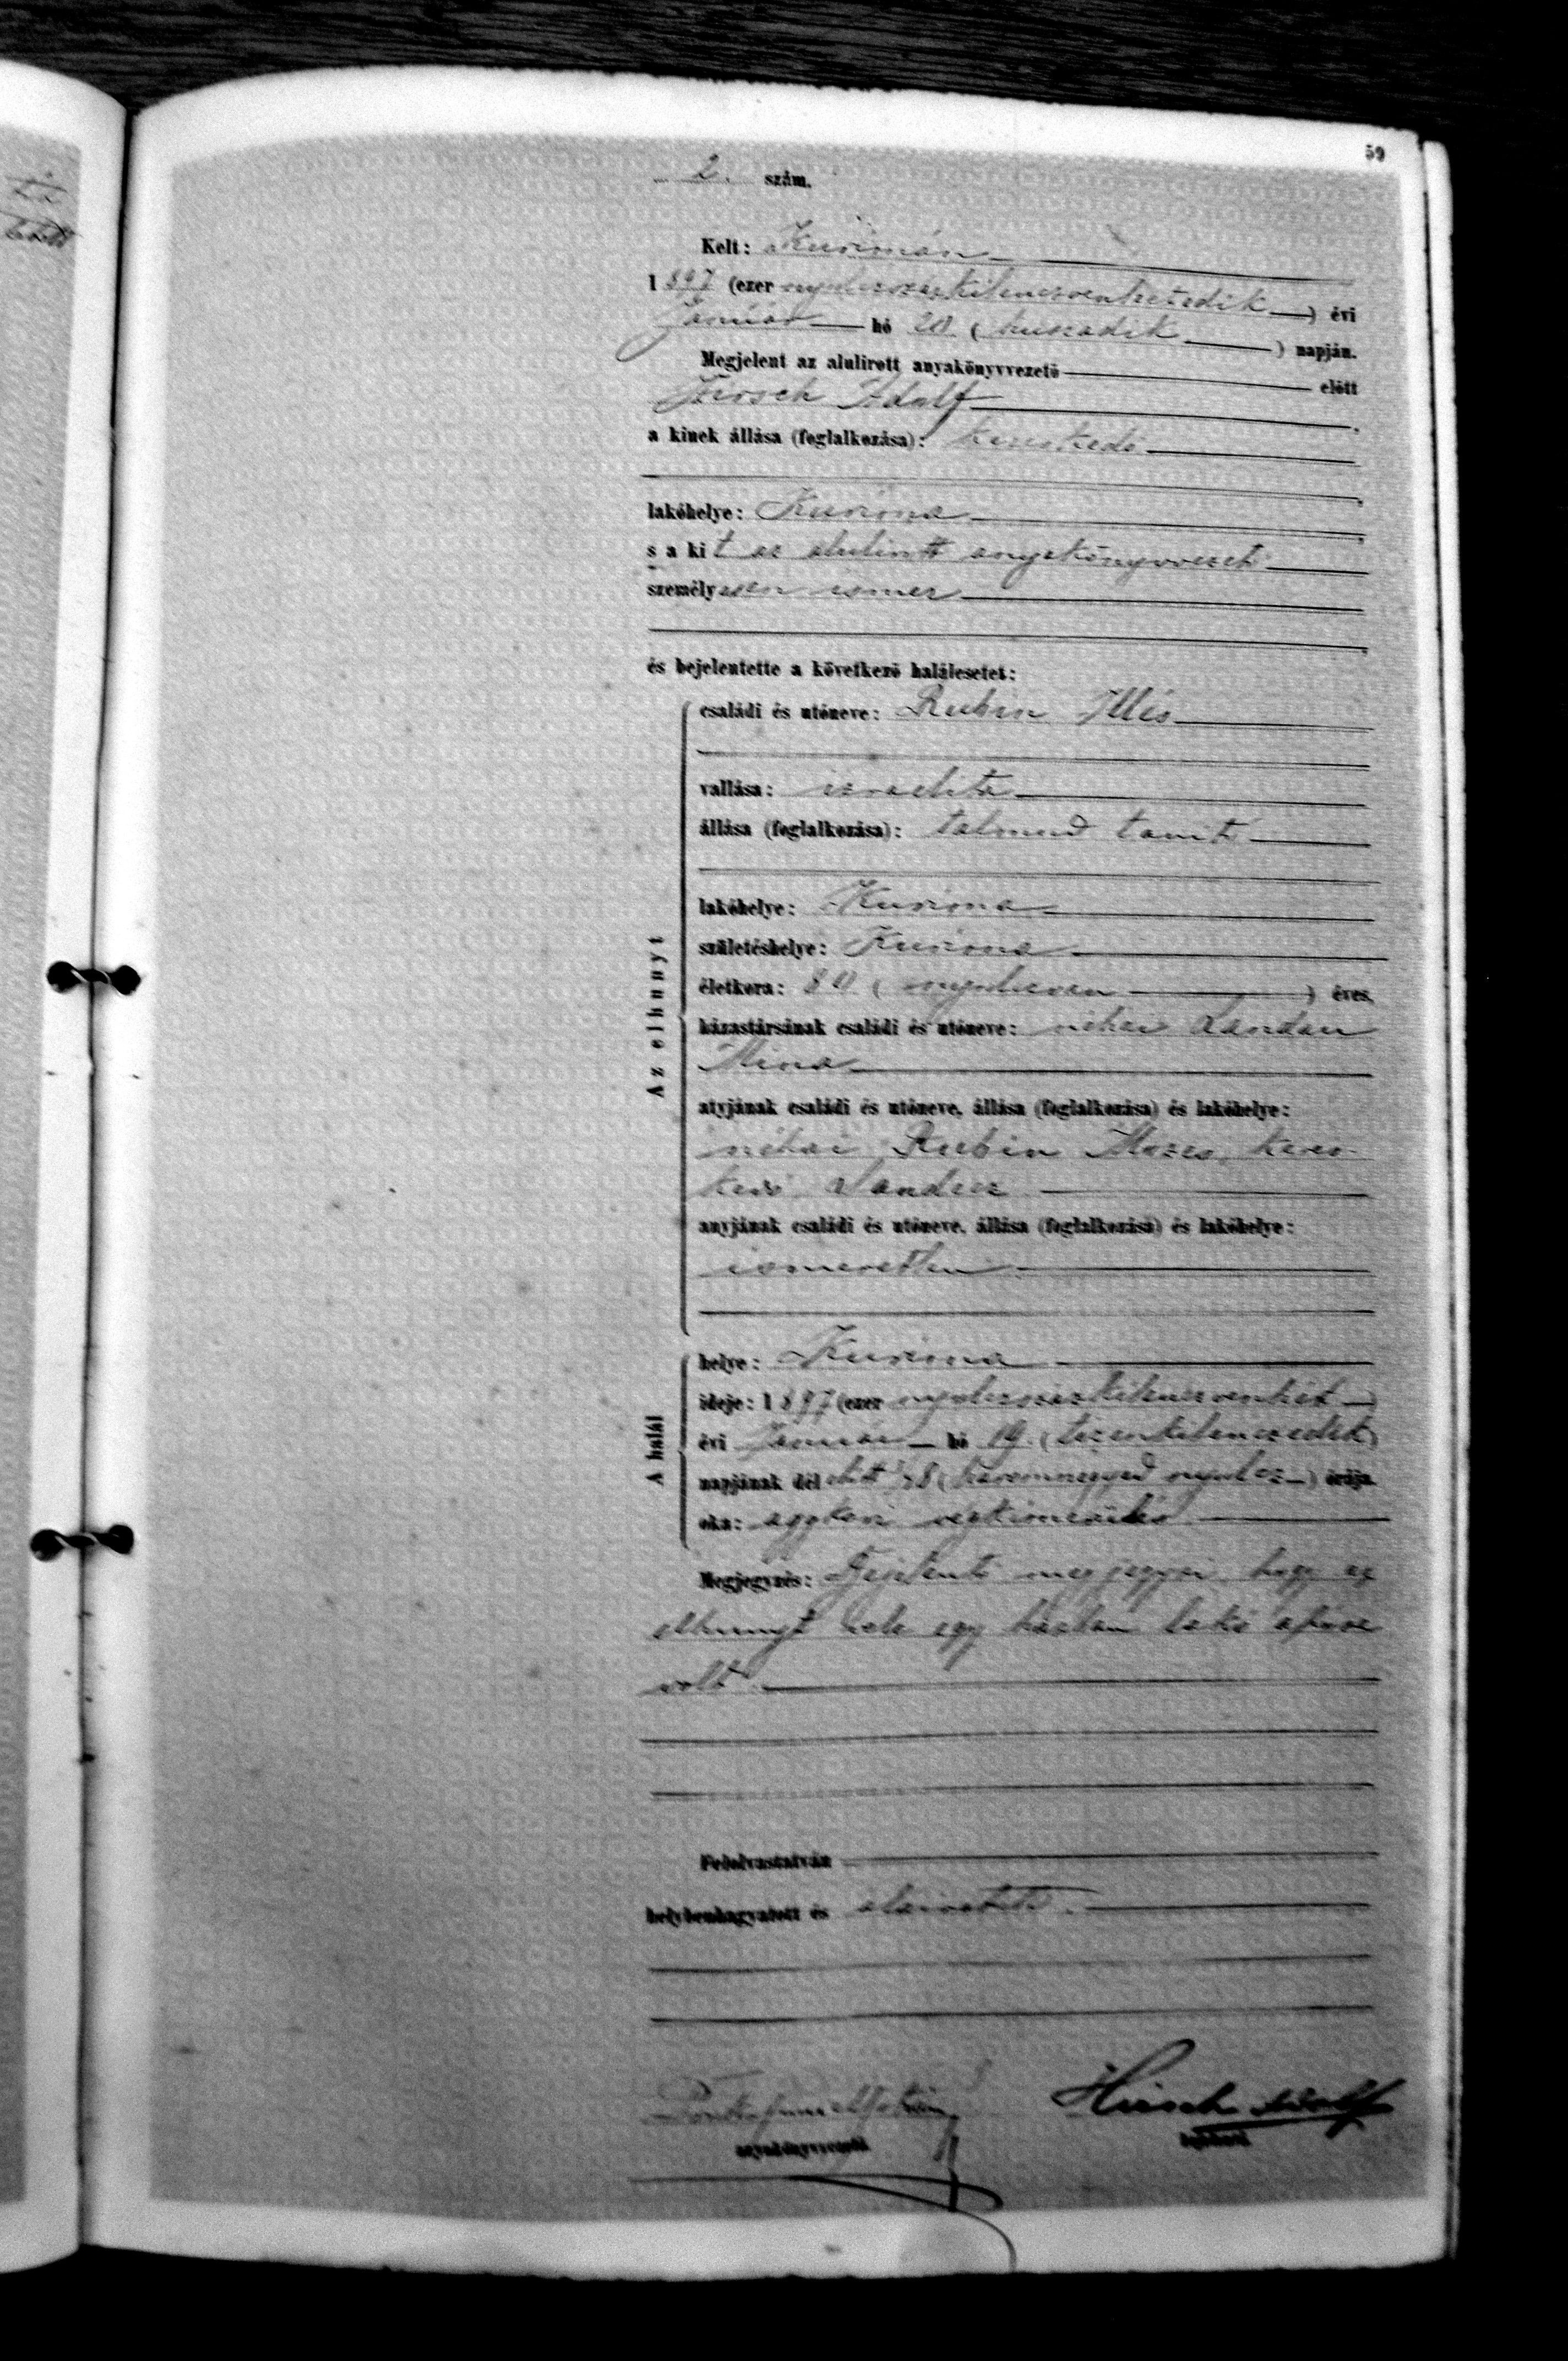 59
2. szám.
Kelt: Kurimán
1897 (ezer nyolczszázkilenczvenhetedik) évi
Január hó 20 (huszadik) napján.
Megjelent az alulirott anyakönyvvezető előtt
Hirsch Adolf
a kinek állása (foglalkozása): kereskedő
lakóhelye: Kurima
s a kit az alulirott anyakönyvvezető
személyesen ismer
és bejelentette a következő halálesetet:
Az elhunyt
családi és utóneve: Rubin Illés
vallása: izraelita
állása (foglalkozása): talmud tanitó
lakóhelye: Kurima
születéshelye: Kurima
életkora: 80 (nyolczvan) éves,
házastársának családi és utóneve: néhai Landau
Mina
atyjának családi és utóneve, állása (foglalkozása) és lakóhelye:
néhai Rubin Mozes, keres-
kedő Sandecz
anyjának családi és utóneve, állása (foglalkozása) és lakóhelye:
ismeretlen
A halál
helye: Kurima
ideje: 1897 (ezer nyolczszázkilenczvenhét)
évi Január hó 19. (tizenkilenczedik)
napjának dél előtt 3/4 8 (háromnegyed nyolcz) órája
oka: aggkori végkimerülés
Megjegyzés: Bejelentő megjegyzi, hogy az
elhunyt vele egy házban lakó apósa
volt
Felolvastatván
helybenhagyatott és aláiratott.
anyakönyvvezető
Hirsch Adolf
bejelentő